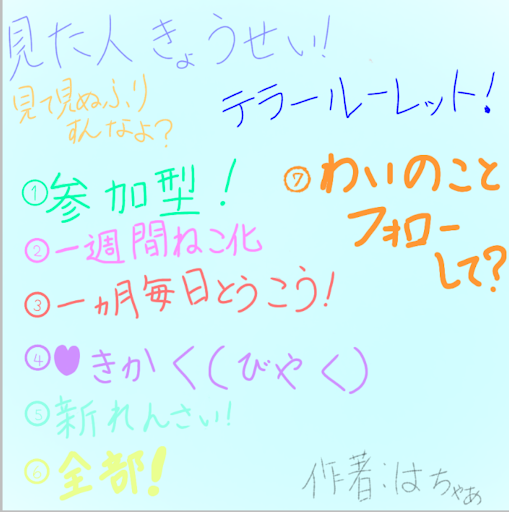 見た人きょうせい!
見て見ぬふり
すんなよ?
テラールーレット!
①参加型!
②一週間ねこ化
③一ヵ月毎日とうこう!
④♥きかく(びやく)
⑤新れんさい!
⑥全部!
⑦わいのこと
フォロー
して?
作者:はちゃぁ